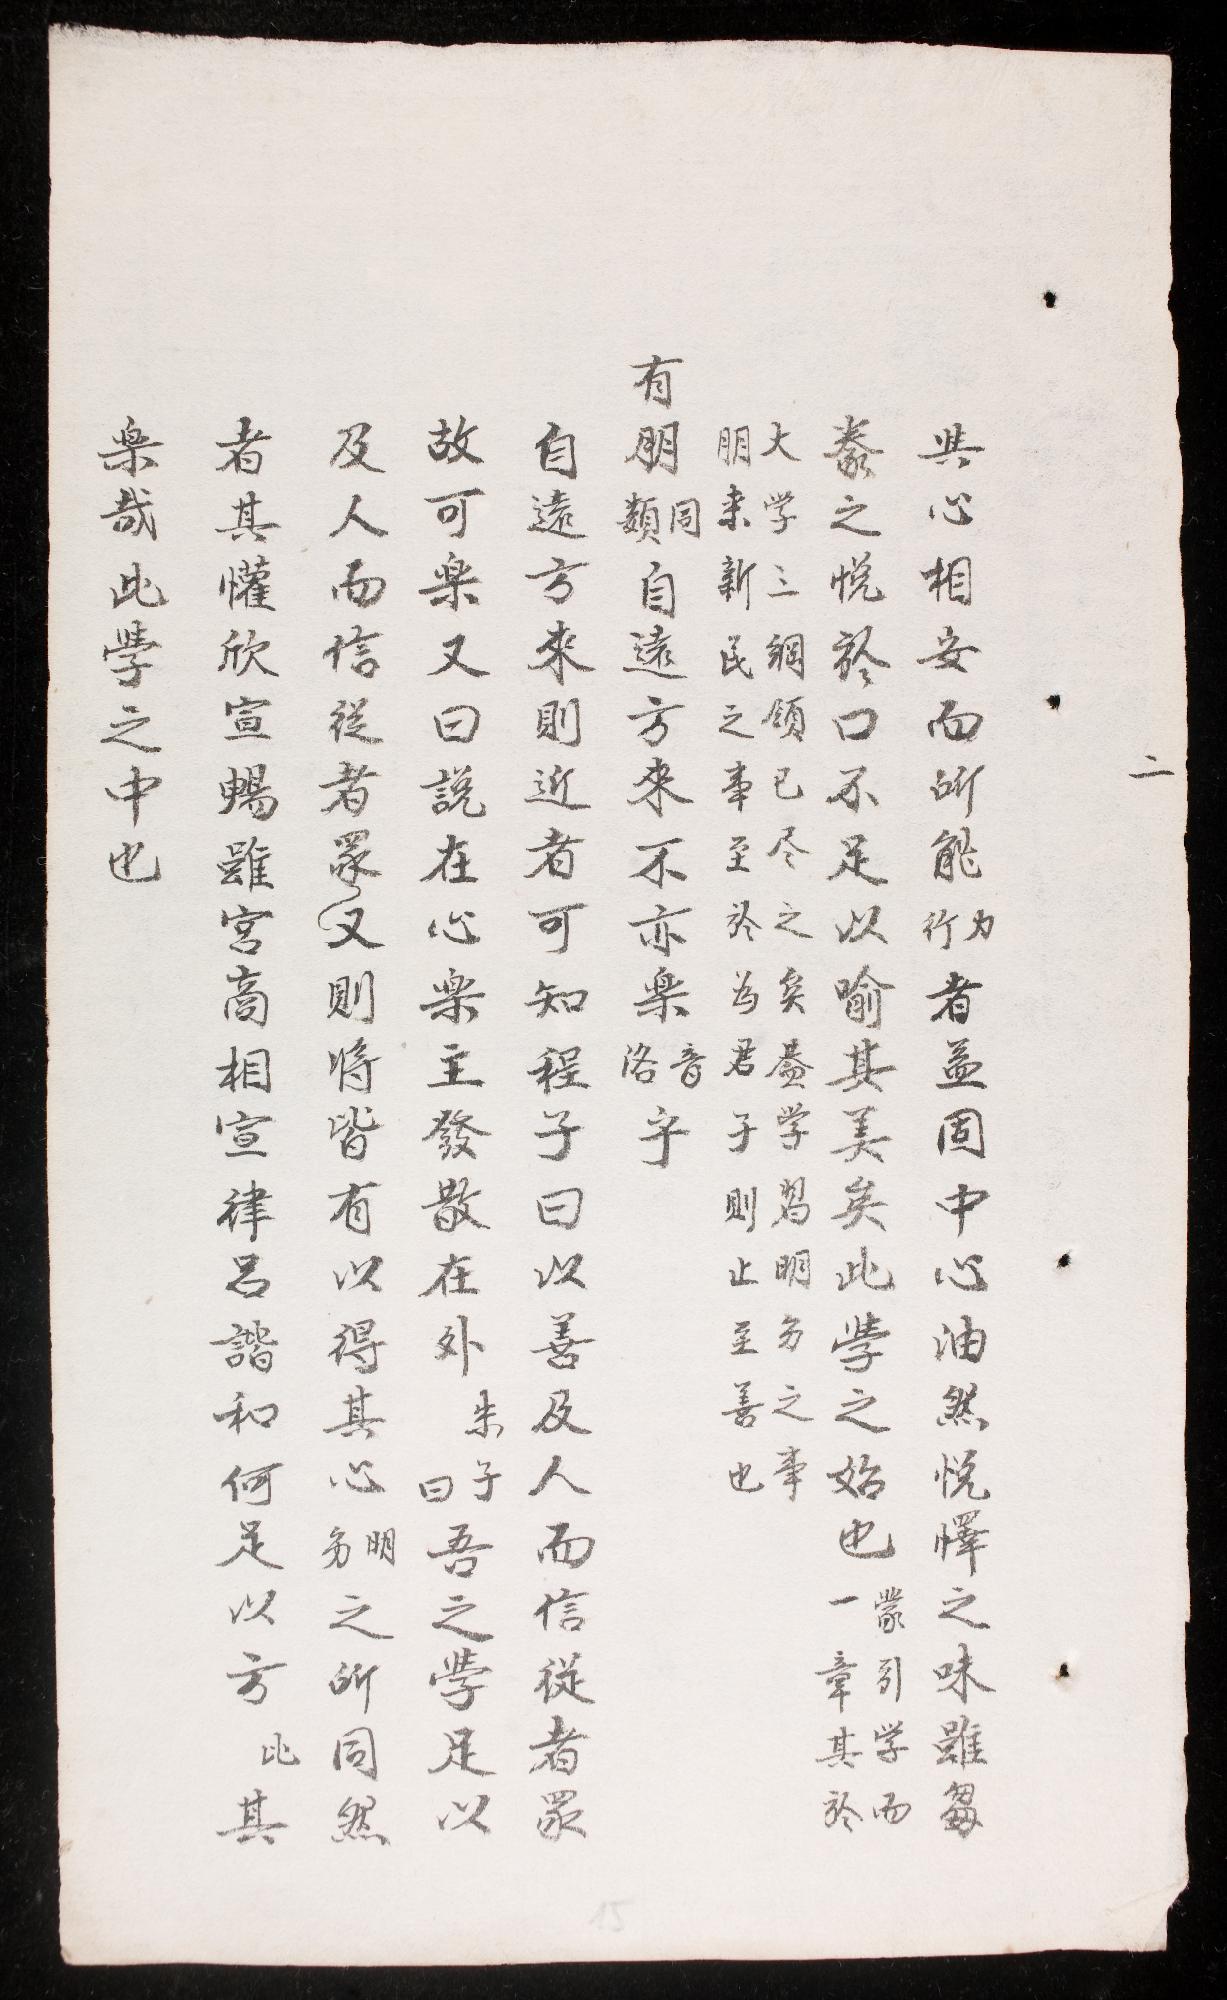 二
與心相安而所能力行者益固中心油然悅懌之味雖芻
豢之悅於口不足以喻其美矣此學之始也蒙引学而一章其於
大学三綱領已尽之矣蓋学習明明之事
朋来新民之事至於為君子則止至善也
有朋同類自遠方來不亦樂音洛乎
自遠方來則近者可知程子曰以善及人而信從者眾
故可樂又曰說在心樂主發散在外朱子曰吾之學足以
及人而信從者眾又則將皆有以得其心明明之所同然
者其懽欣宣暢雖宮商相宣律呂諧和何足以方比其
樂哉此學之中也
15